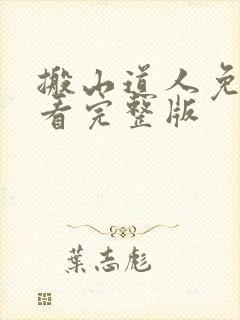 搬山道人免
看完整版
葉志彪